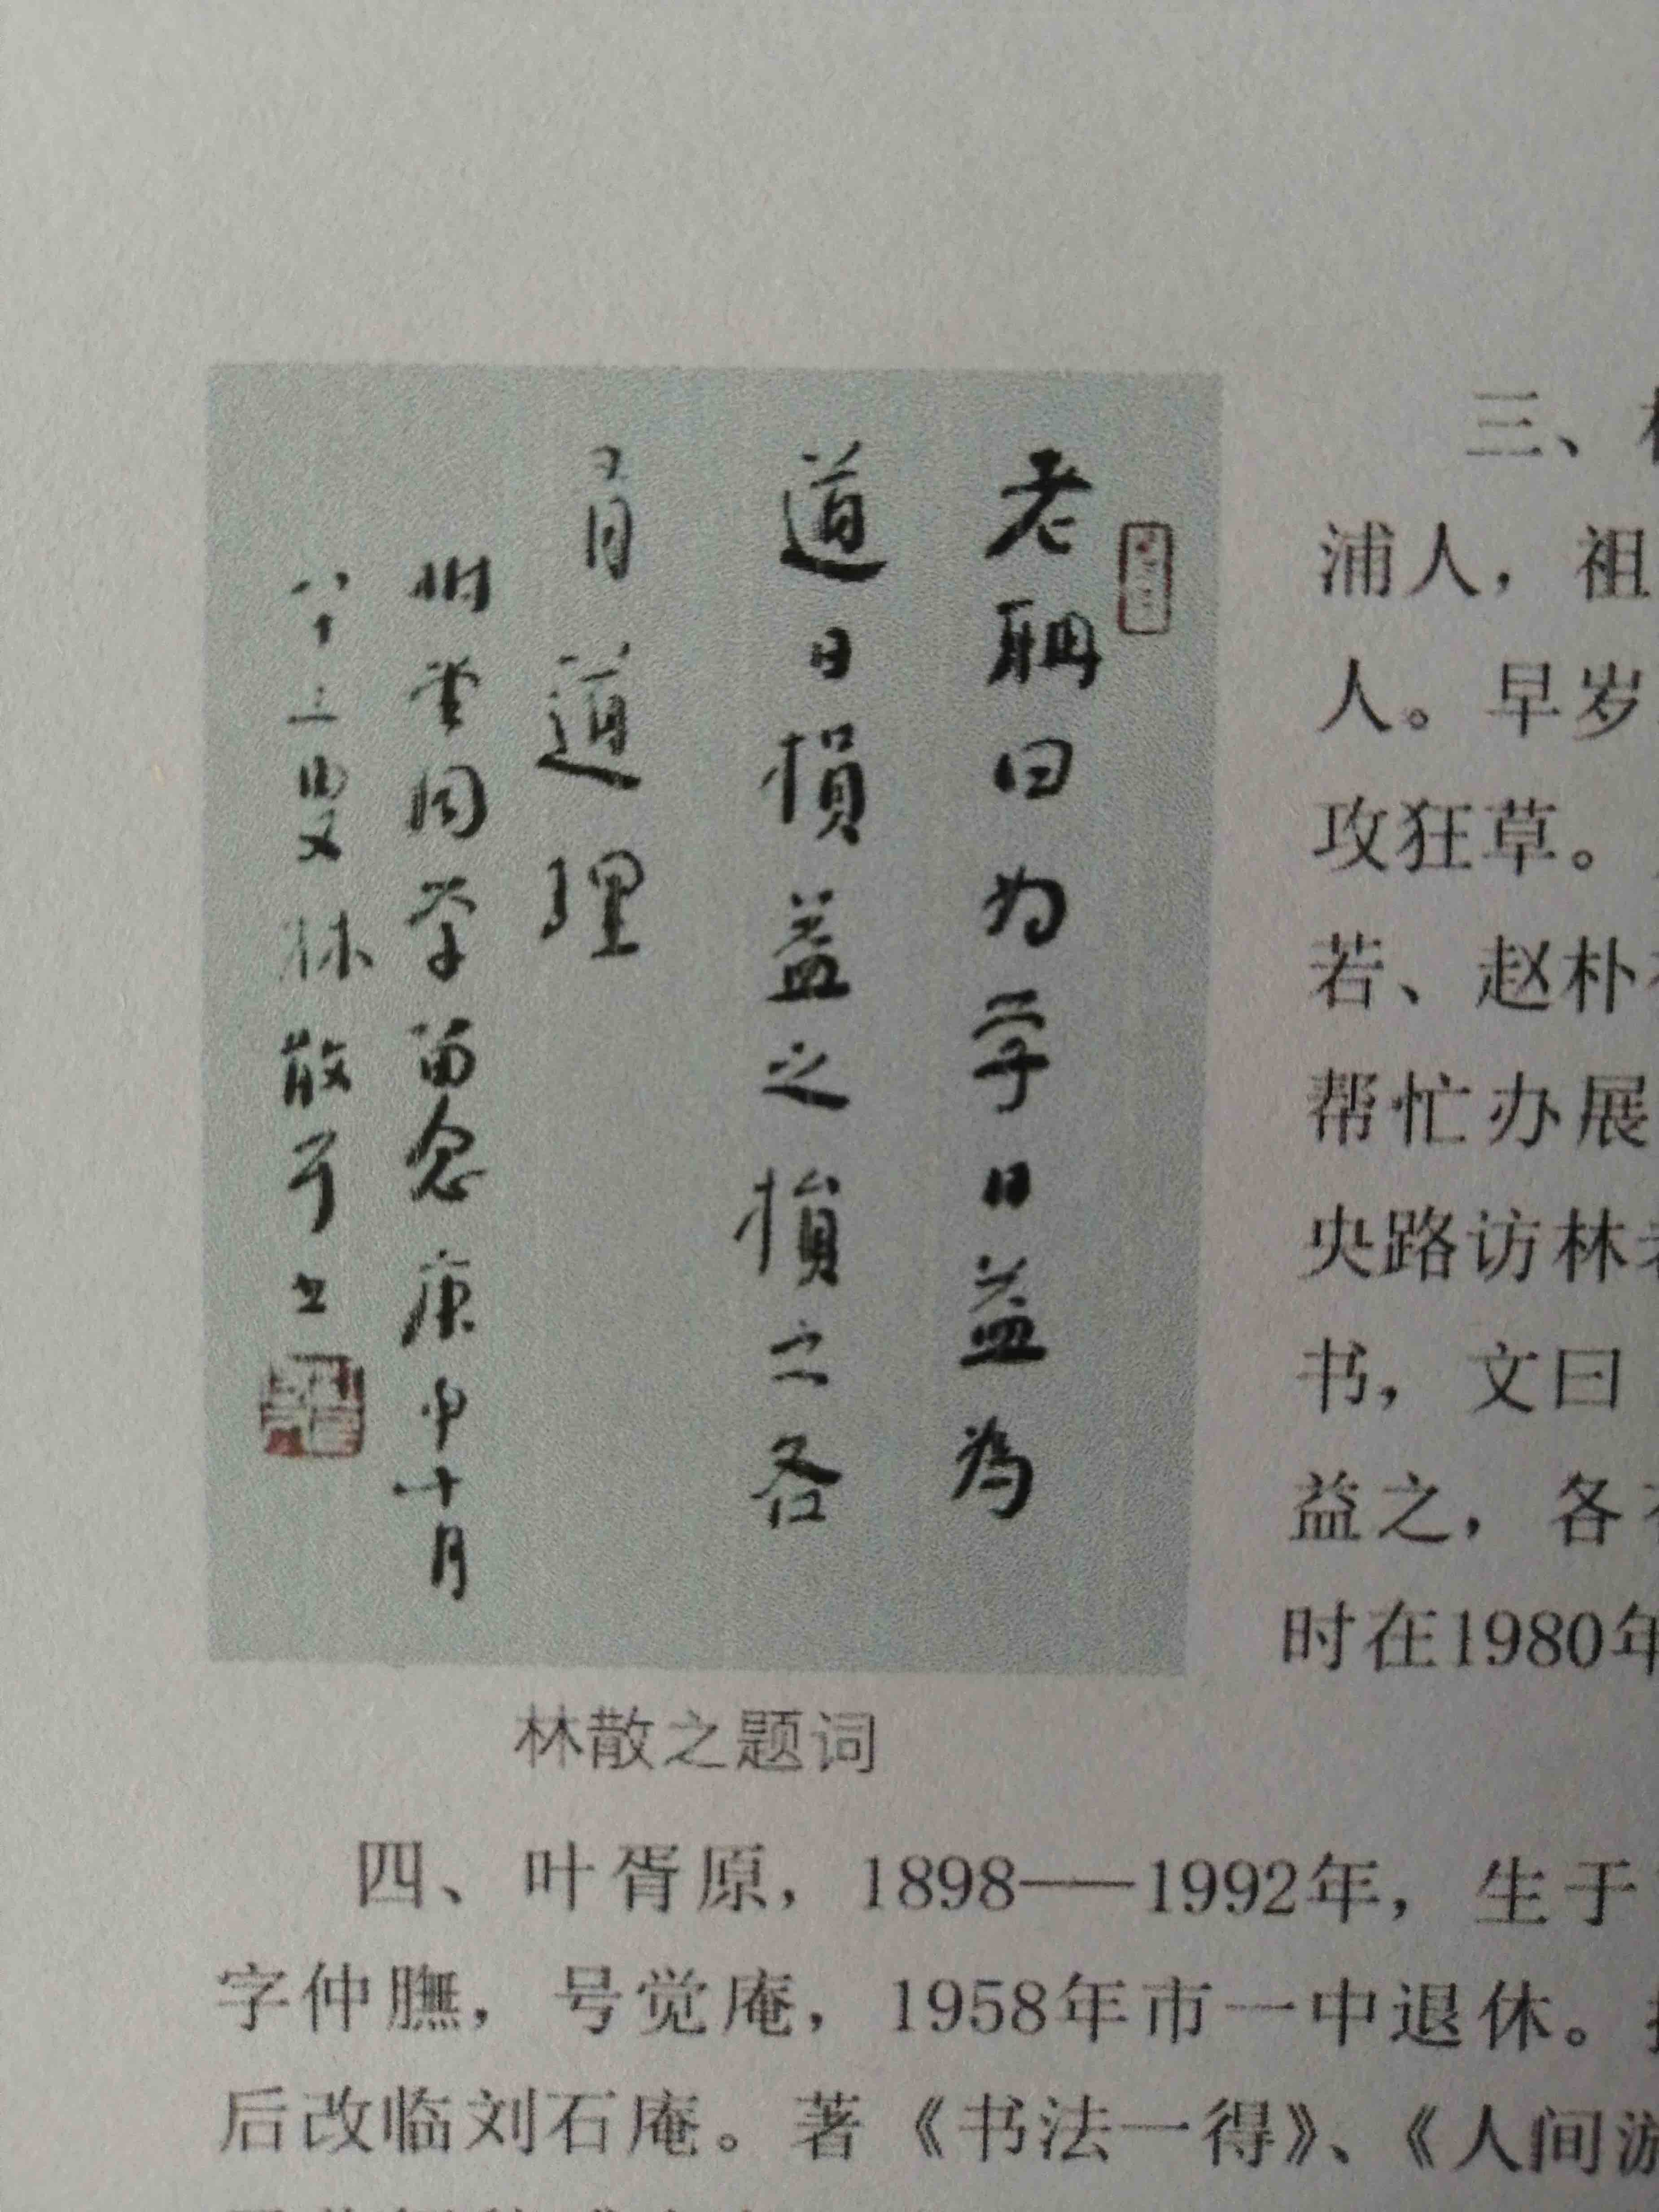 老聃曰为学日益為
道日損益之損之各
有道理
學同学留念庚申十月
八十三叟林散耳书
林散之题词
三、
浦人，祖
人。早岁
攻狂草。
若、赵朴
帮忙办展
央路访林
书，文曰
益之，各
时在1980年
四、叶胥原，1898——1992年，生于
字仲膴，号觉庵，1958年市一中退休。
后改临刘石庵。著《书法一得》、《人间